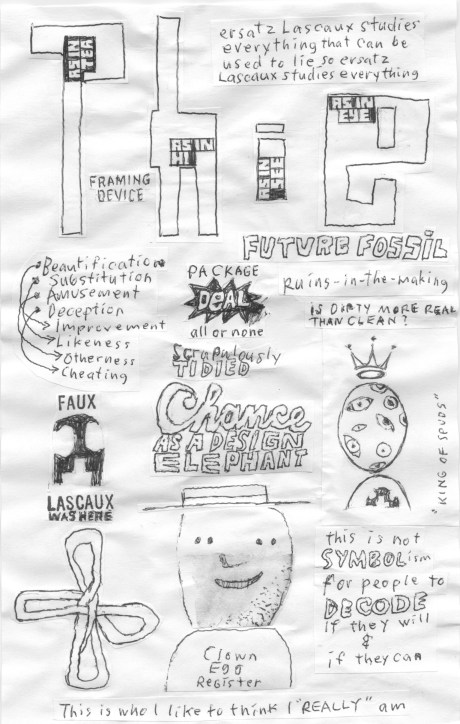 Thie
AS IN
TEA
AS IN
HI
AS IN
AS IN
EYE
ersatz Lascaux studies
everything that can be
used to lie so ersatz
Lascaux studies everything
FRAMING
DEVICE
FUTURE FOSSIL
Ruins-in-the-making
Beautification
Substitution
Amusement
Deception
Improvement
Likeness
Otherness
Cheating
PACKAGE
DEAL
all or none
Scrupulously
TIDIED
IS DIRTY MORE REAL
THAN CLEAN?
FAUX
LASCAUX
WAS HERE
Chance
AS A DESIGN
ELEPHANT
"KING OF SPUDS"
this is not
SYMBOLism
for people to
DECODE
if they will
&
if they can
Clown
Egg
Register
This is who I like to think I "REALLY" am